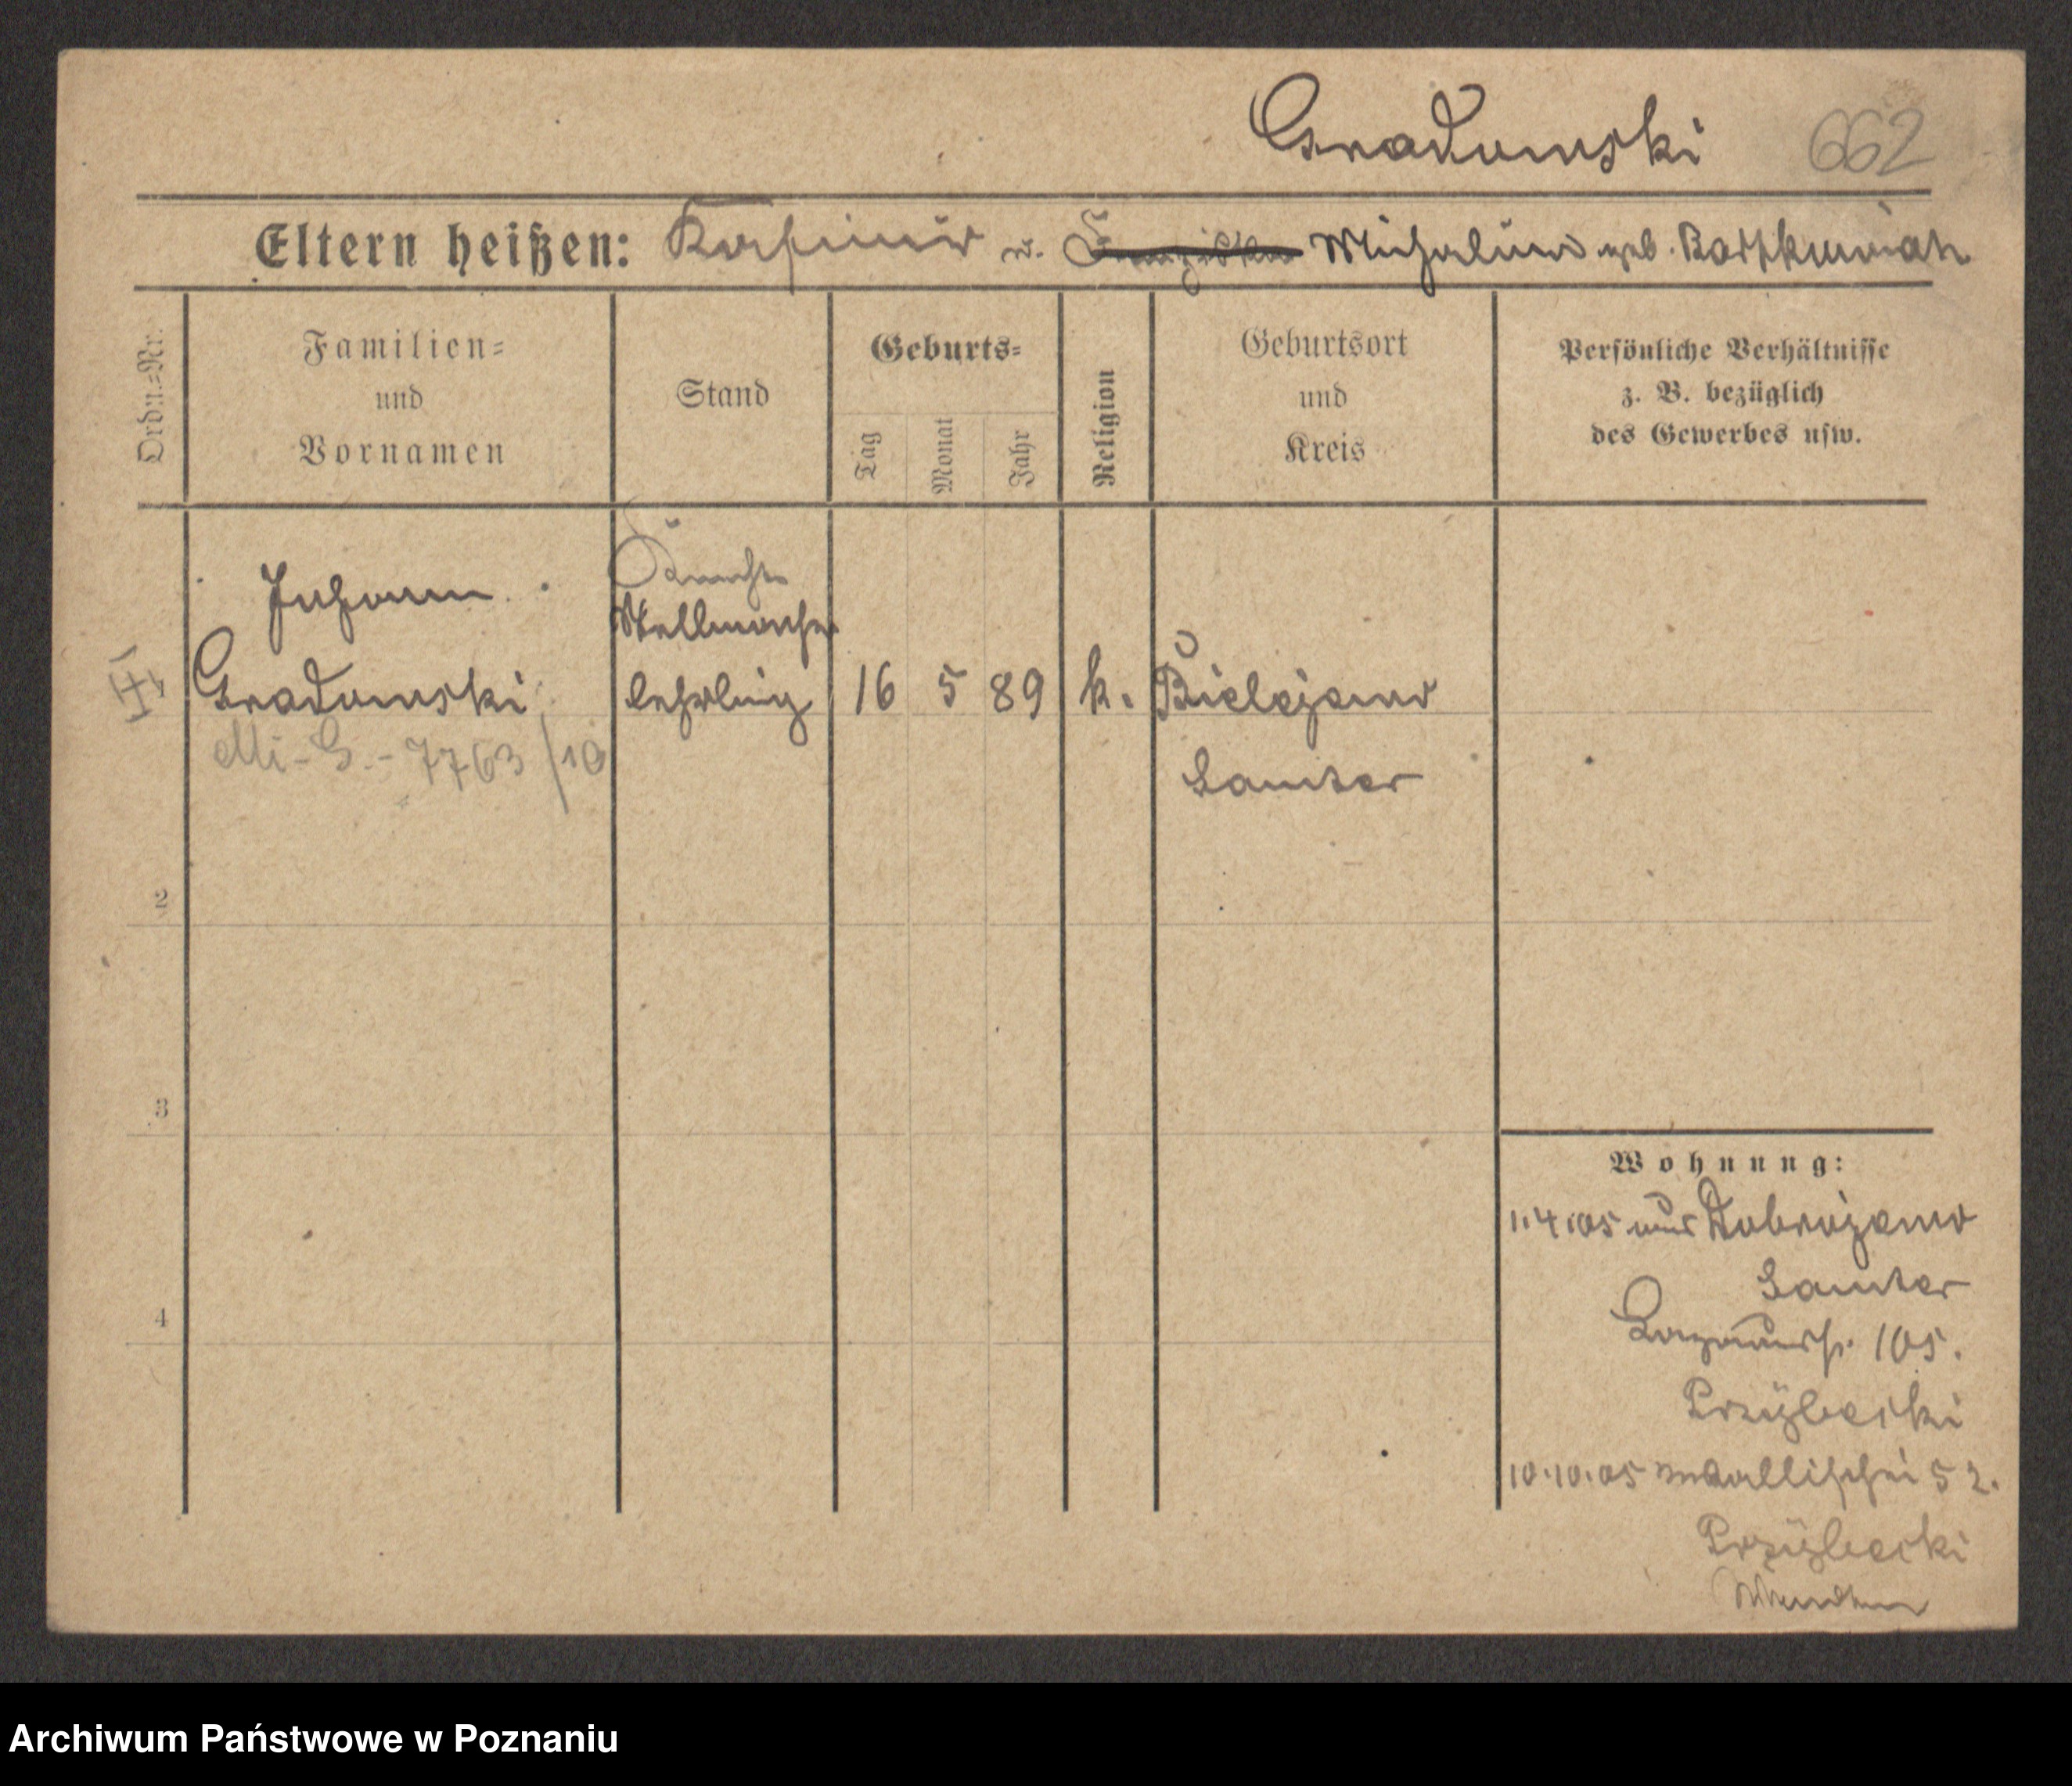 Gradowski 662
Eltern heißen: Kasimir u. Franziska Michalina geb. Bartkowiak
Ordn.=Nr.
Familien=
und
Vornamen
Stand
Geburts=
Tag
Monat
Jahr
Religion
Geburtsort
und
Kreis
Persönliche Verhältnisse
z. B. bezüglich
des Gewerbes usw.
Johann
Stellmacher
Gradowski lehrling 16 5 89 k. Bielejewo
Mi-G.-7763/10
Samter
2
3
4
Wohnung:
1.4.05 aus Dobrojewo
Samter
105.
Przybecki
10.10.05 Wallischei 52.
Przybecki
Archiwum Państwowe w Poznaniu